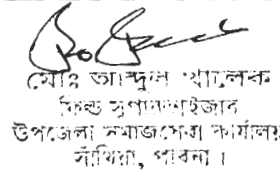 মোঃ আব্দুল খালেক
ফিল্ড সুপারভাইজার
উপজেলা সমাজসেবা কার্যালয়
সাঁথিয়া, পাবনা ।